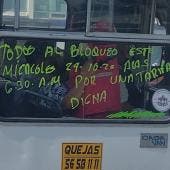 TODOS AL BLOQUEO ESTE
MIERCOLES 29-10-20 A LAS
6:30 A.M POR UNA TARIFA
DIGNA
QUEJAS
56 58 11 11